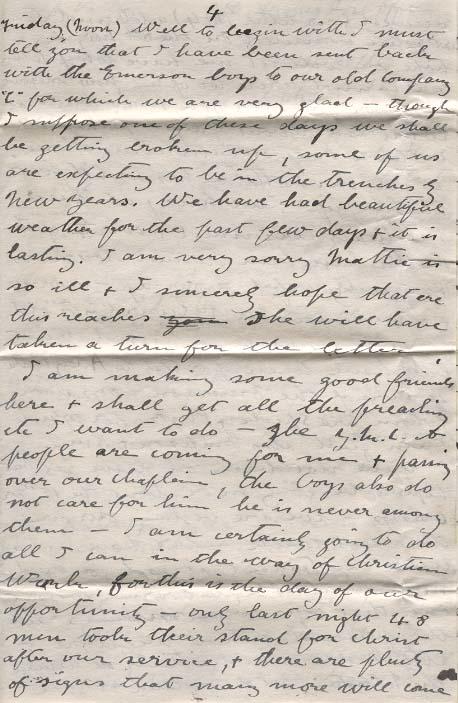 4
Friday (Noon) Well to begin with I must
tell you that I have been sent back
with the Emerson boys to our old Company
"C" for which we are very glad - though
I suppose one of these days we shall
be getting broken up, some of us
are expecting to be in the trenches by
New Years. We have had beautiful
weather for the past few days & it is
lasting. I am very sorry Mattie is
so ill & I sincerely hope that ere
this reaches you she will have
taken a turn for the better
I am making some good friends
here & shall get all the preaching
etc I want to do - The Y.M.C.A
people are coming for me & passing
over our chaplain, the boys also do
not care for him he is never among
them - I am certainly going to do
all I can in the way of Christian
Work, for this is the day of our
opportunity - only last night 48
men took their stand for Christ
after our service, & there are plenty
of signs that many more will come